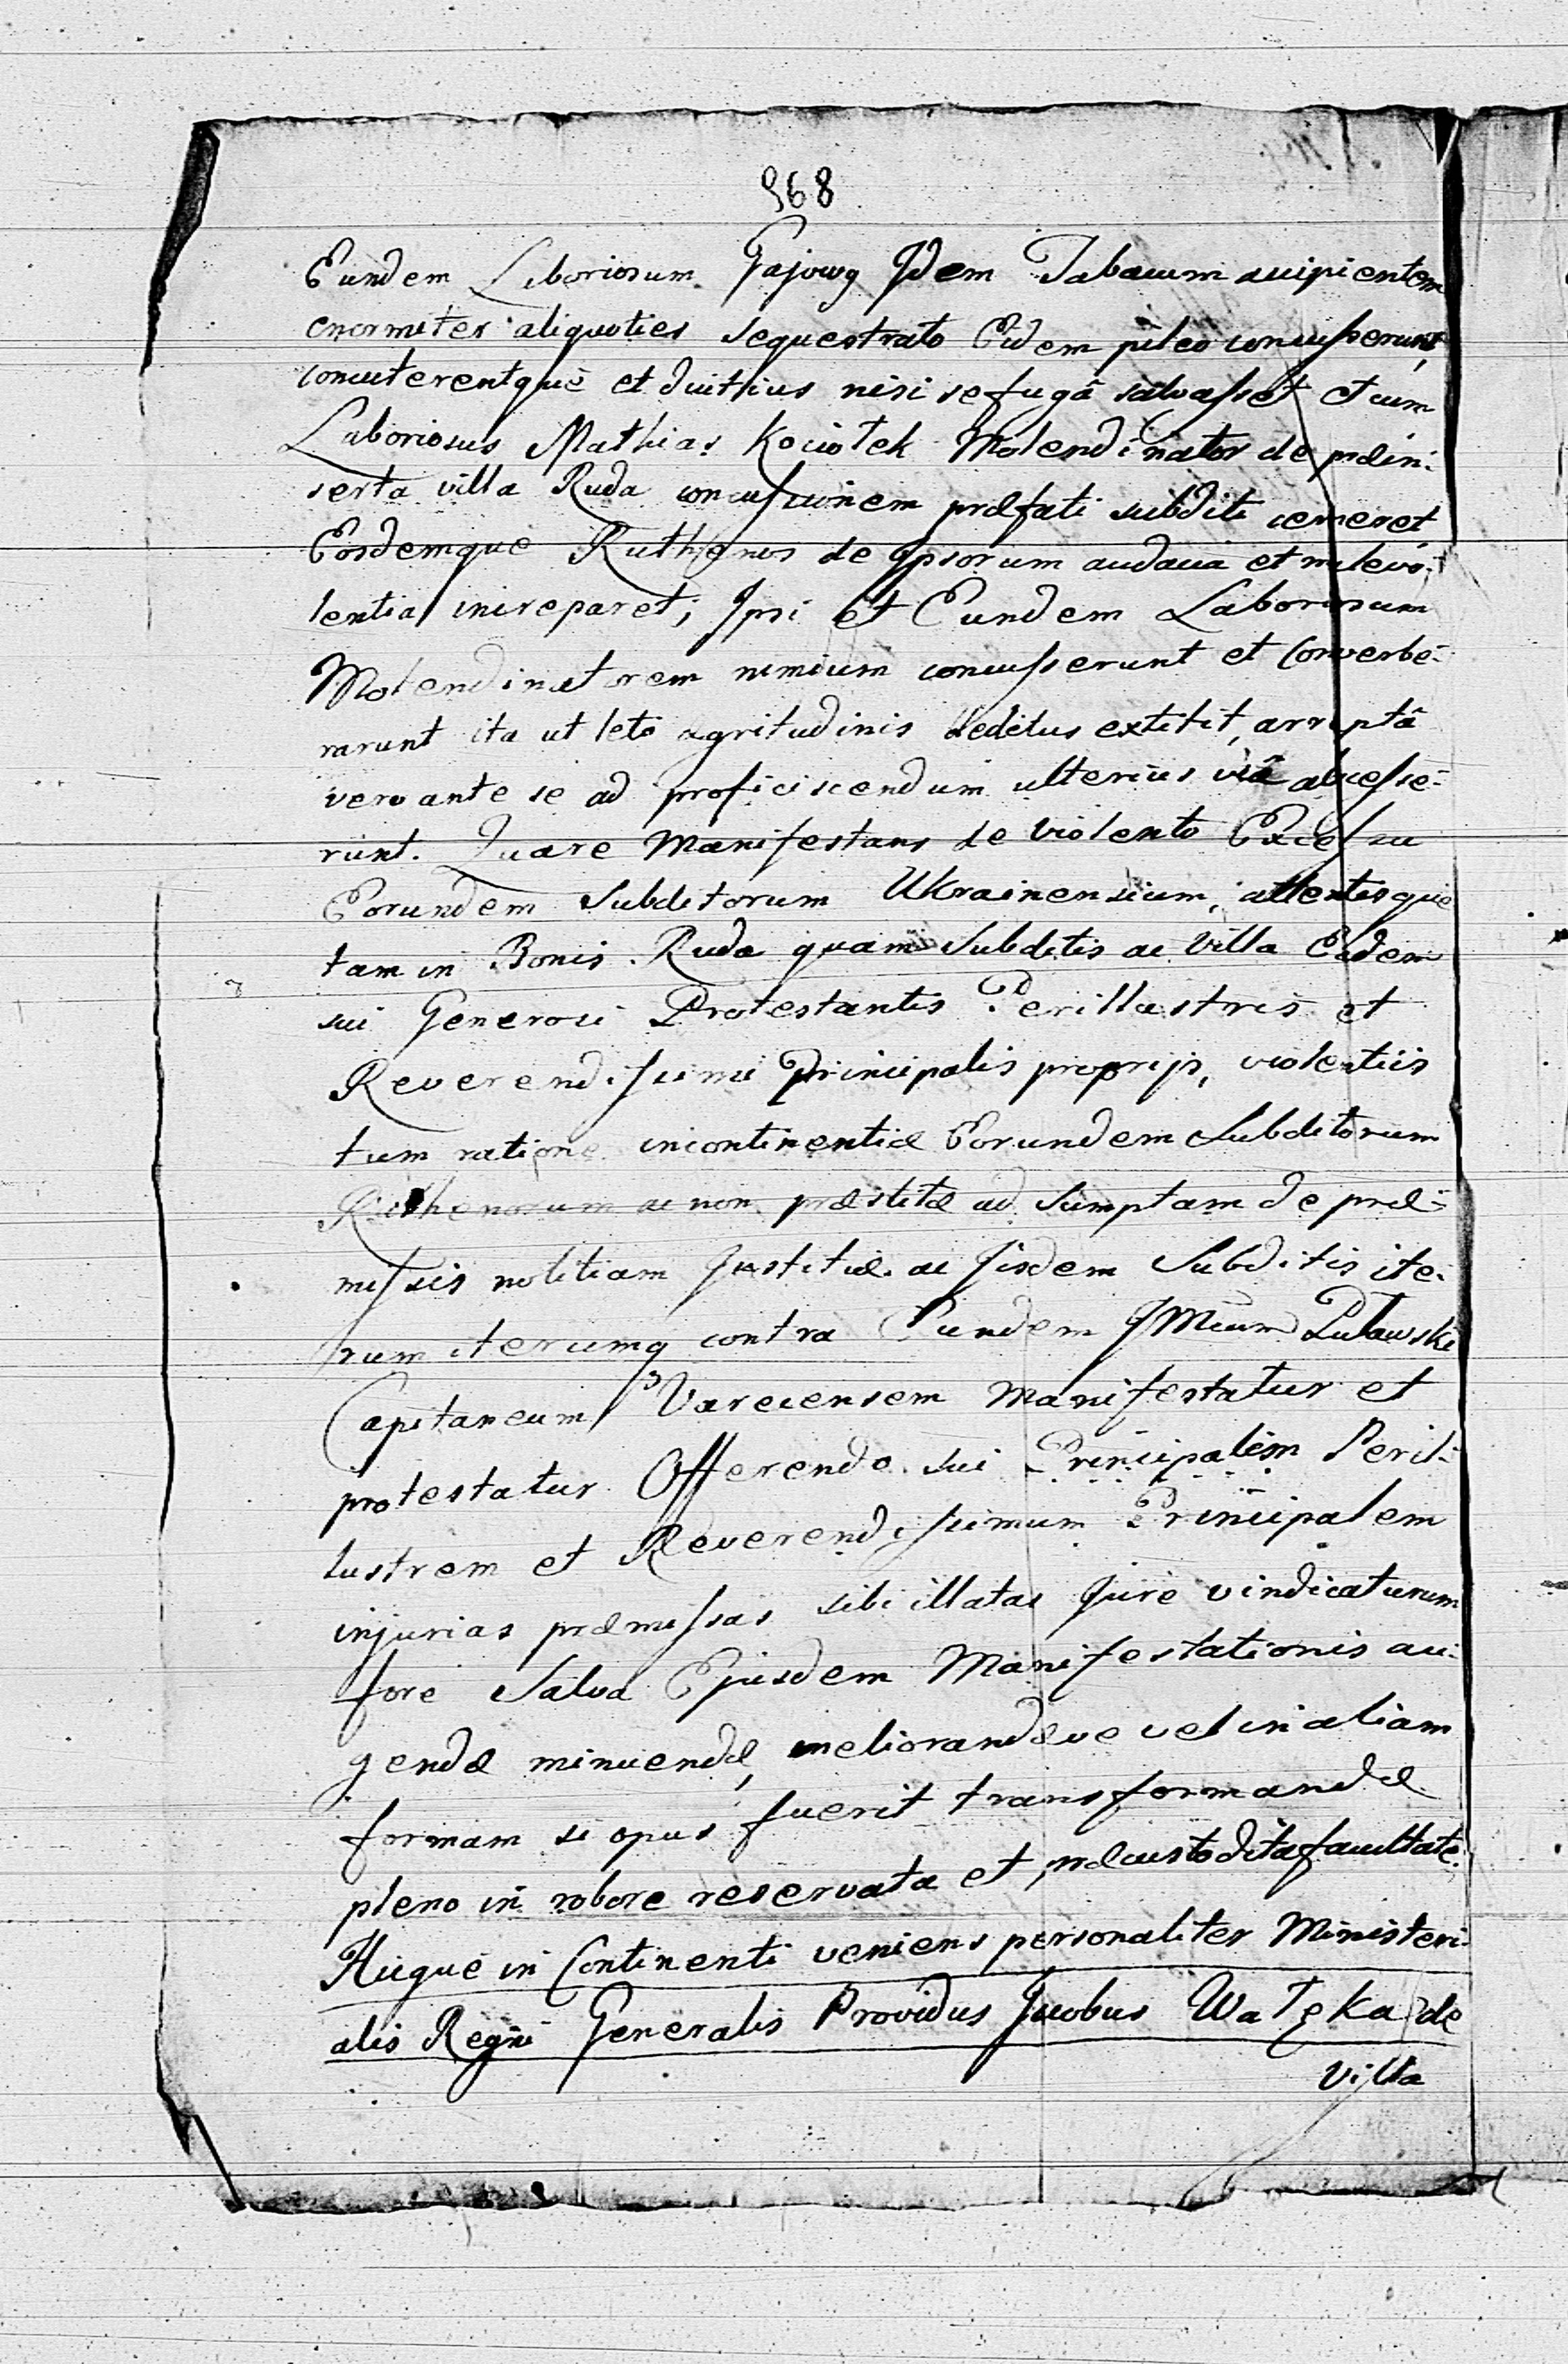 968
Eundem Laboriosum Gajowy Idem Tabacum accipientem
enormiter aliquoties sequestrato Eidem pileo concusserunt,
concuterentquè et diuthius nisi se fugâ salvasset et cum
Laboriosus Mathias Kociołek Molendinator de prdin:
serta villa Ruda concussionem præfati subditi cerneret
Eosdemquè Ruthenos de Ipsorum audacia et malevo:
lentia increparet; Ipsi et Eundem Laboriosum
Molendinatorem nimium concusserunt et Converbe:
rarunt ita ut leto ægritudinis deditus extitit, arreptâ
vero ante se ad proficiscendum ulterius viâ abcesse:
runt. Quare Manifestans de violento Excessu
Eorundem Subditorum Ukrainensium, attentisquè
tam in Bonis Ruda quam Subditis ac Villa Eadem
sui Generosi Protestantis Perillustris et
Reverendissimi Principalis proprijs, violentiis
tum ratione incontinentiæ Eorundem Subditorum
Ruthenorum ac non præstitæ ad Sumptam de præ:
missis notitiam Justitiæ ac Iisdem Subditis ite:
rum iterumq contra Eundem IMcum Puławski
Capitaneum Varecensem Manifestatur et
protestatur Offerendo sui Principalem Peril:
lustrem et Reverendissimum Principalem
injurias præmissas sibi illatas Jurè vindicaturum
fore Salva Ejusdem Manifestationis au:
gendæ minuendæ, meliorandæve vel in aliam
formam si opus fuerit transformandæ
pleno in robore reservata et præcustodita facultate.
Hicquè in Continenti veniens personaliter Ministeri:
alis Regni Generalis Providus Jacobus Wałęka de
villa